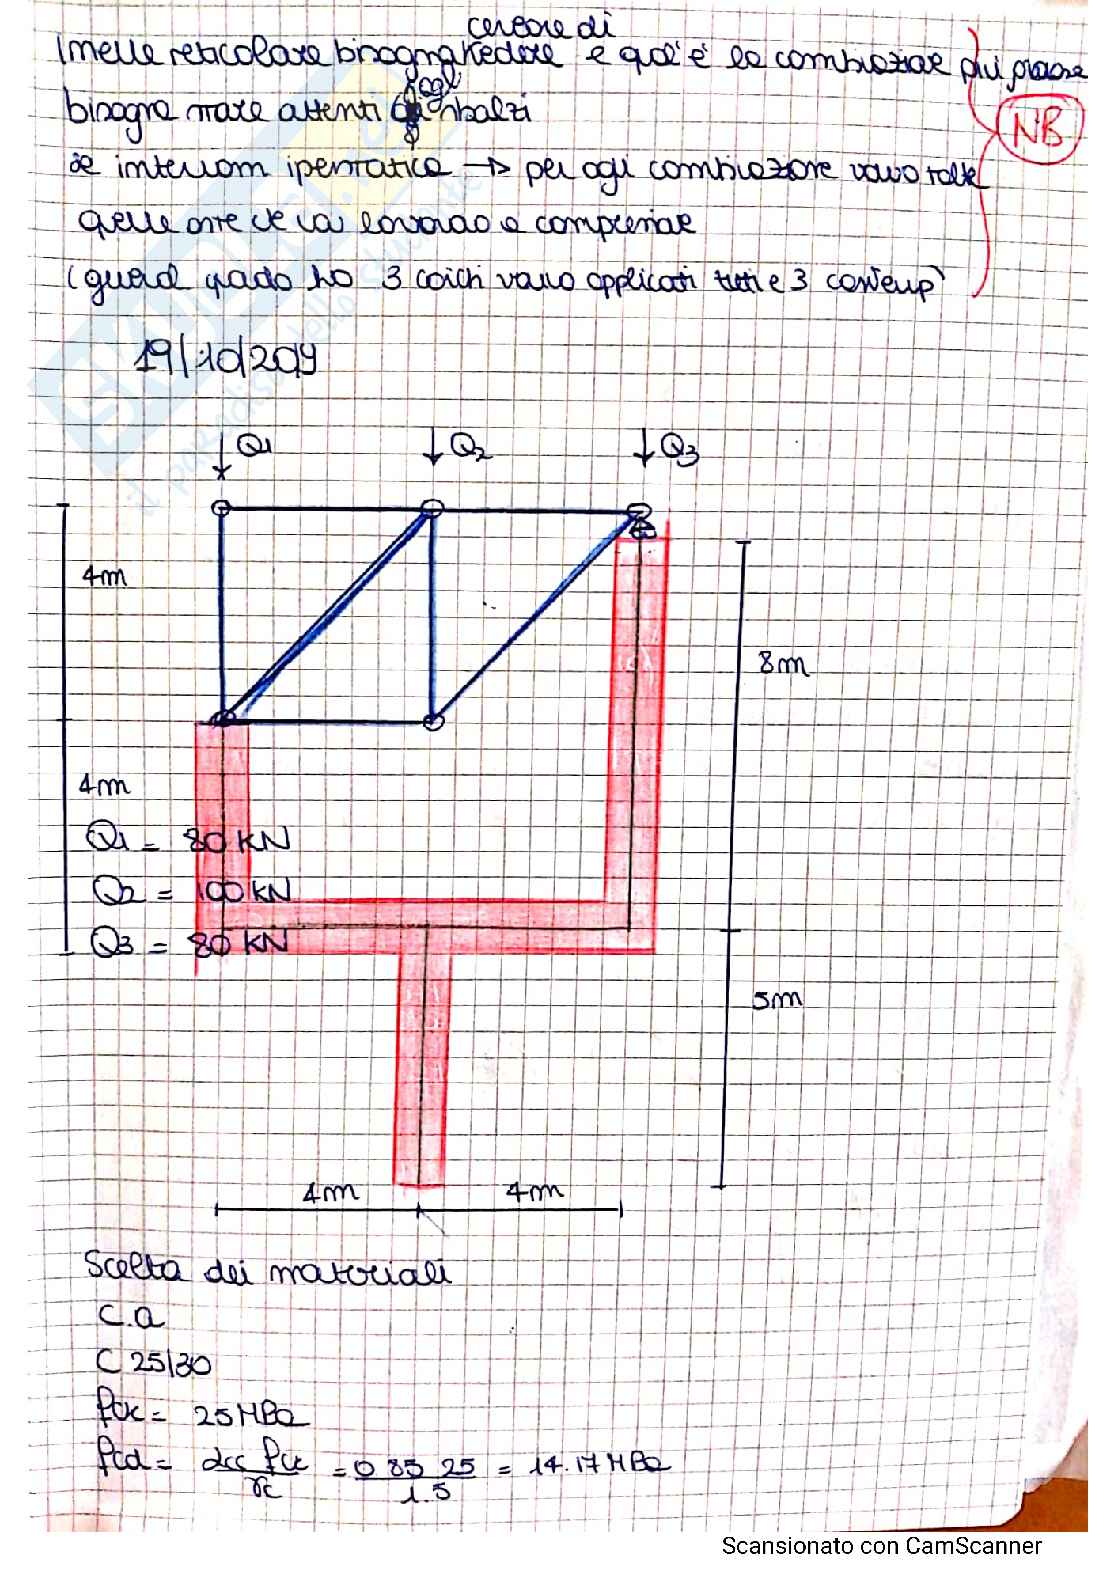 cercare di
nelle reticolare bisogna vedere e qual'è la combinazione più
bisogna stare attenti agli sbalzi
se internam iperstatica → per ogni combinazione vanno tolte
quelle aste che lavorano a compressione
(quando ho 3 carichi vanno applicati tutti e 3 contemp)
NB
19/10/2019
Q1
Q2
Q3
4m
8m
4m
Q1 = 80 KN
Q2 = 100 KN
Q3 = 80 KN
5m
4m
4m
Scelta dei materiali
C.a
C 25/30
fck = 25 MPa
fcd = αcc fck / γc = 0.85 25 / 1.5 = 14.17 MPa
Scansionato con CamScanner